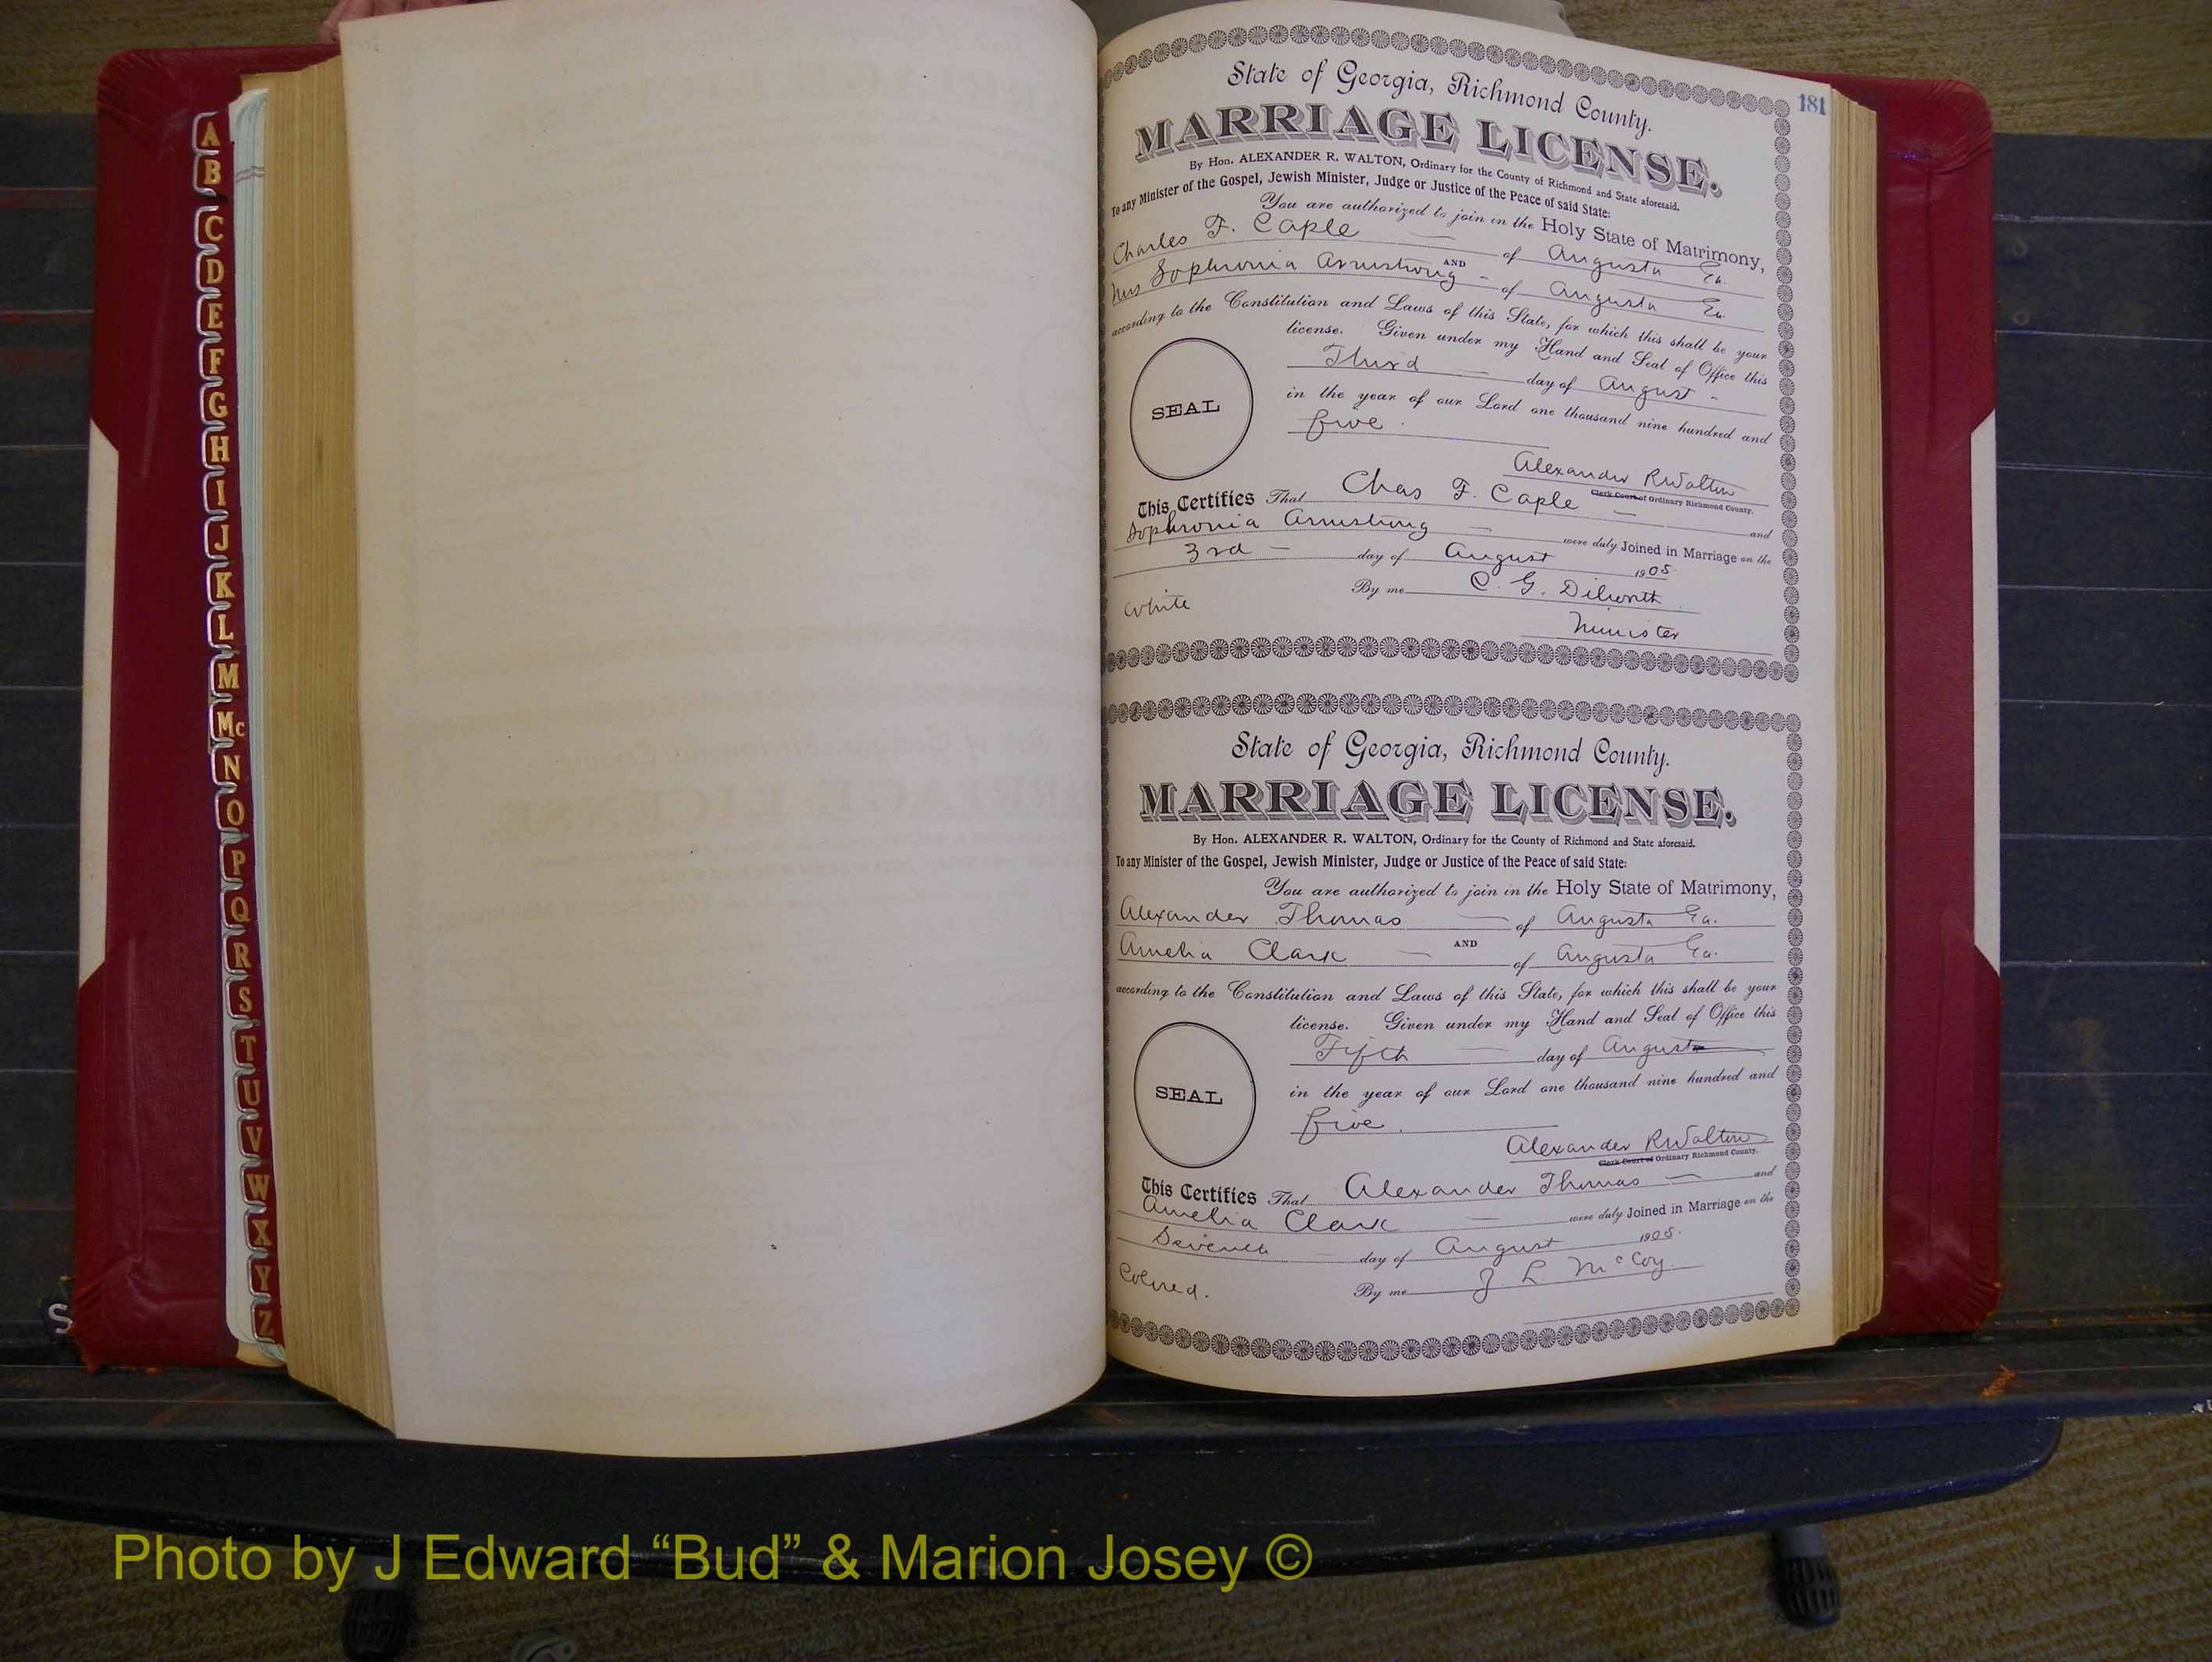 A
B
C
D
E
F
G
H
I
J
K
L
M
Mc
N
O
P
Q
R
S
T
U
V
W
X
Y
Z
S
181
State of Georgia, Richmond County.
MARRIAGE LICENSE.
By Hon. ALEXANDER R. WALTON, Ordinary for the County of Richmond and State aforesaid.
To any Minister of the Gospel, Jewish Minister, Judge or Justice of the Peace of said State:
You are authorized to join in the Holy State of Matrimony,
Charles F. Caple of Augusta Ga.
AND
Sophronia Armstrong of Augusta Ga.
according to the Constitution and Laws of this State, for which this shall be your
license. Given under my Hand and Seal of Office this
Third day of August
in the year of our Lord one thousand nine hundred and
five.
SEAL
Alexander R Walton
Clerk Court of Ordinary Richmond County.
This Certifies That Chas F. Caple and
Sophronia Armstrong were duly Joined in Marriage on the
3rd day of August 1905
By me C. G. Dilworth
White
Minister
State of Georgia, Richmond County.
MARRIAGE LICENSE.
By Hon. ALEXANDER R. WALTON, Ordinary for the County of Richmond and State aforesaid.
To any Minister of the Gospel, Jewish Minister, Judge or Justice of the Peace of said State:
You are authorized to join in the Holy State of Matrimony,
Alexander Thomas of Augusta Ga.
AND
Amelia Clark of Augusta Ga.
according to the Constitution and Laws of this State, for which this shall be your
license. Given under my Hand and Seal of Office this
Fifth day of August
in the year of our Lord one thousand nine hundred and
five.
SEAL
Alexander R Walton
Clerk Court of Ordinary Richmond County.
This Certifies That Alexander Thomas and
Amelia Clark were duly Joined in Marriage on the
Seventh day of August 1905.
By me J L McCoy
Colored.
Photo by J Edward “Bud” & Marion Josey ©